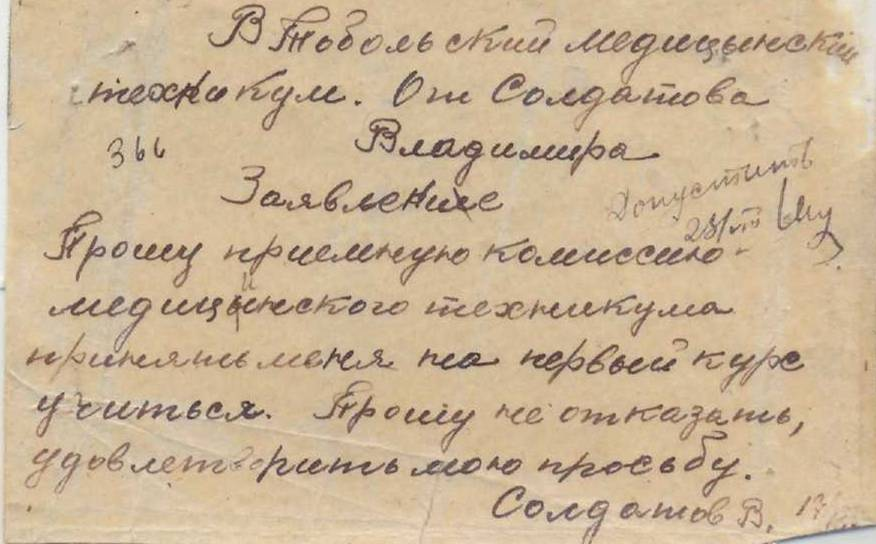 В Тобольский медицынский
техникум. От Солдатова
366 Владимира
Заявление
Допустить
Прошу приемную комиссию
28/VIII
медицинского техникума
принять меня на первый курс
учиться. Прошу не отказать,
удовлетворить мою просьбу.
Солдатов В. 17